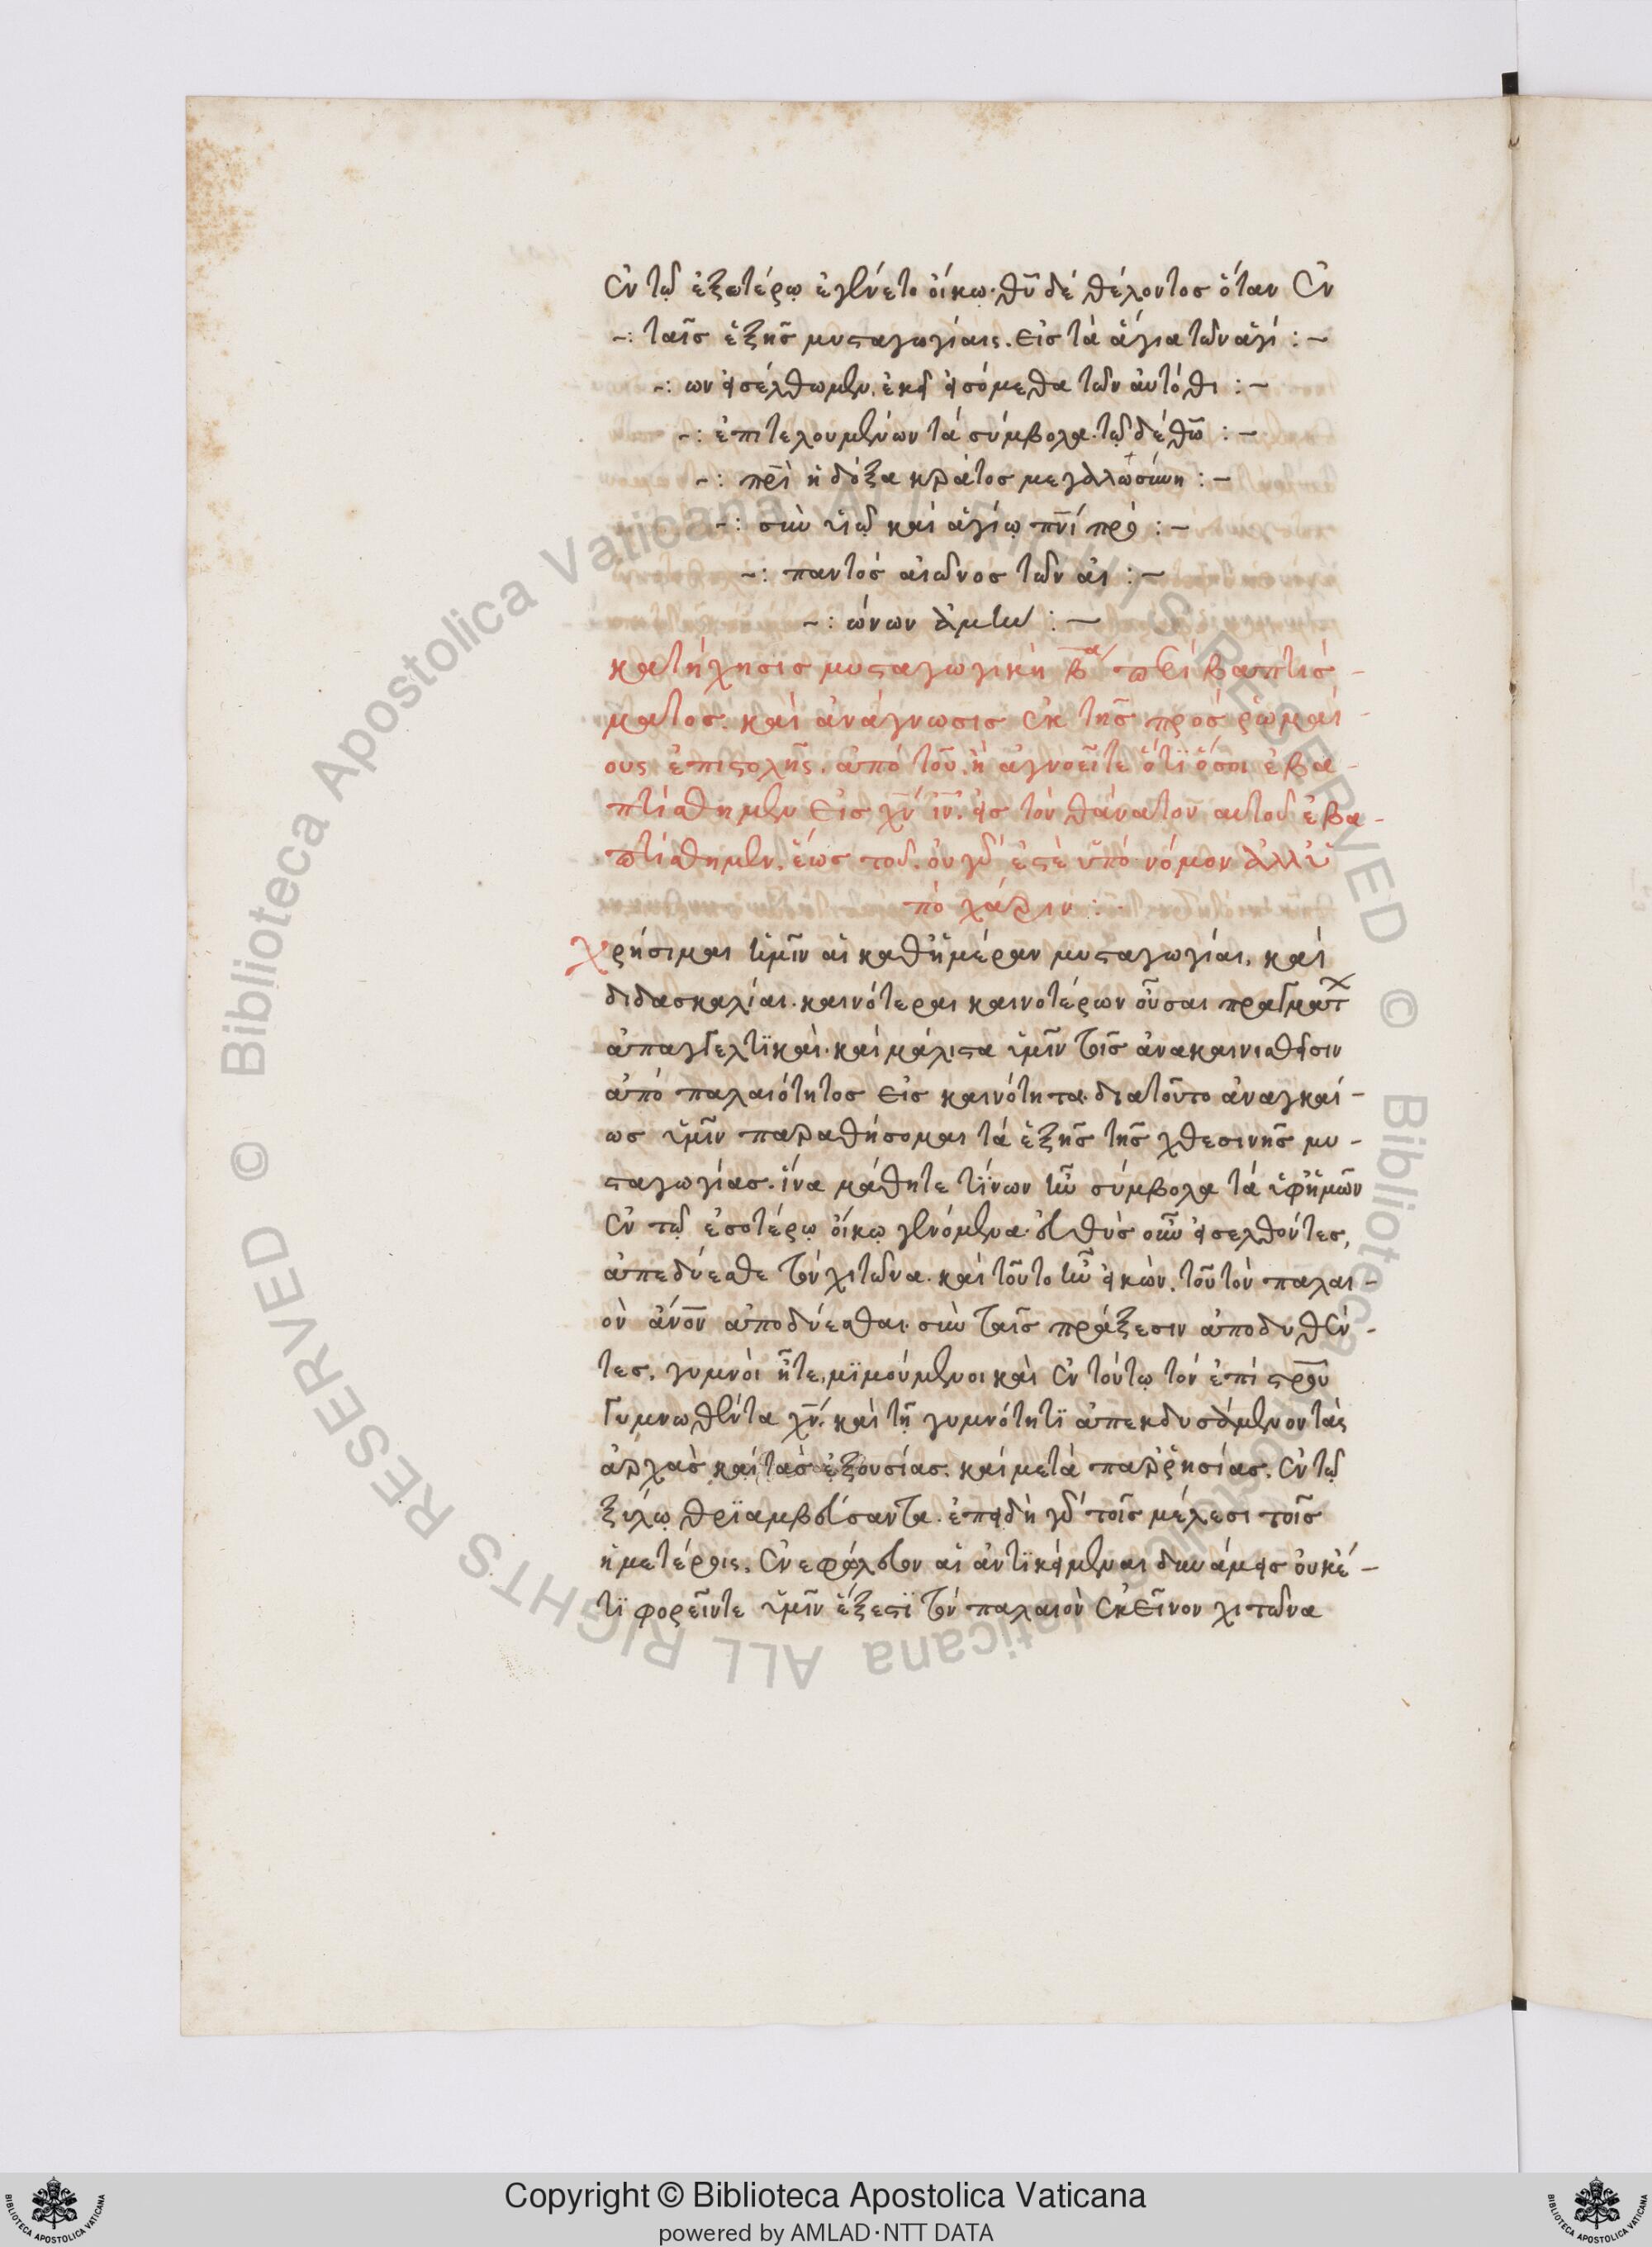 ἐν τῷ ἐξωτέρῳ ἐγένετο οἴκῳ· θῦ δέ θέλοντος ὅταν ἐν
-: ταῖσ ἑξῆσ μυσταγωγίαις. εἰσ τὰ ἅγια τῶν ἁγί :-
-: ων εἰσέλθωμεν, ἐκεῖ εἰσόμεθα τῶν αὐτόθι :-
-: ἐπιτελουμένων τά σύμβολα. τῷ δέ θῶ :-
-: πρὶ ἡ δόξα κράτοσ μεγαλωσύνη :-
-: σὺν υἱῷ καὶ ἁγίῳ πνί πρὸ :-
-: παντόσ αἰῶνοσ τῶν αἰ :-
-: ώνων ἀμήν :-
κατήχησισ μυσταγωγικὴ βα περί βαπτίσ-
ματοσ. καὶ ἀνάγνωσισ ἐκ τῆσ πρόσ ῥωμαί-
ους ἐπιστολῆς. ἀπὸ τοῦ. ἢ ἀγνοεῖτε ὅτϊ ὅσοι ἐβα-
πτίσθημεν εἰσ χν ιν. εἰσ τὸν θάνατον αυτοῦ ἐβα-
πτίσθημεν. ἕωσ τοῦ. οὐ γάρ ἐστὲ ὑπό νόμον ἀλλ' ὑ
πὸ χάριν :-
Χρήσιμαι ὑμῖν αἱ καθ' ἡμέραν μυσταγωγίαι, καί
διδασκαλίαι. καινότεραι καινοτέρων οὖσαι πραγμάτ
ἀπαγγελτϊκαὶ. καὶ μάλιστα ὑμῖν τοῖσ ἀνακαινισθεῖσιν
ἀπό παλαιότητοσ εἰσ καινότητα. διατοῦτο ἀναγκαί-
ωσ ὑμῖν παραθήσομαι τά ἑξῆσ τῆσ χθεσινῆσ μυ-
σταγωγίασ. ἵνα μάθητε τϊνων ἦν σύμβολα τά ὑφ' ἡμῶν
ἐν τῷ ἐσοτέρῳ οἴκῳ γενόμενα. εὐθὺσ οὖν εἰσελθόντεσ,
ἀπεδύεσθε τόν χιτῶνα. καὶ τοῦτο ἦν εἰκὼν. τοῦ τὸν παλαι-
ὸν ἄνον ἀποδύεσθαι σὺν ταῖσ πράξεσιν ἀποδυθέν-
τεσ, γυμνὸι ἦτε, μϊμούμενοι καὶ ἐν τούτῳ τόν ἐπί στρου
γυμνωθέντα χν. καὶ τῇ γυμνότητϊ ἀπεκδυσάμενον τὰς
ἀρχὰσ καὶ τὰσ ἐξουσίασ. καὶ μετὰ παρρησίασ. ἐν τῷ
ξύλῳ θρϊαμβεύσαντα. ἐπειδὴ γάρ τοῖσ μέλεσι τοῖσ
ἡμετέροις. ἐνεφώλευον αἱ ἀντϊκείμεναι δυνάμεισ οὐκέ-
τϊ φορεῖντε ὑμῖν ἔξεστϊ τόν παλαιὸν ἐκεῖνον χιτῶνα
Copyright © Biblioteca Apostolica Vaticana
powered by AMLAD·NTT DATA
© Biblioteca Apostolica Vaticana ALL RIGHTS RESERVED
© Biblioteca Apostolica Vaticana ALL RIGHTS RESERVED